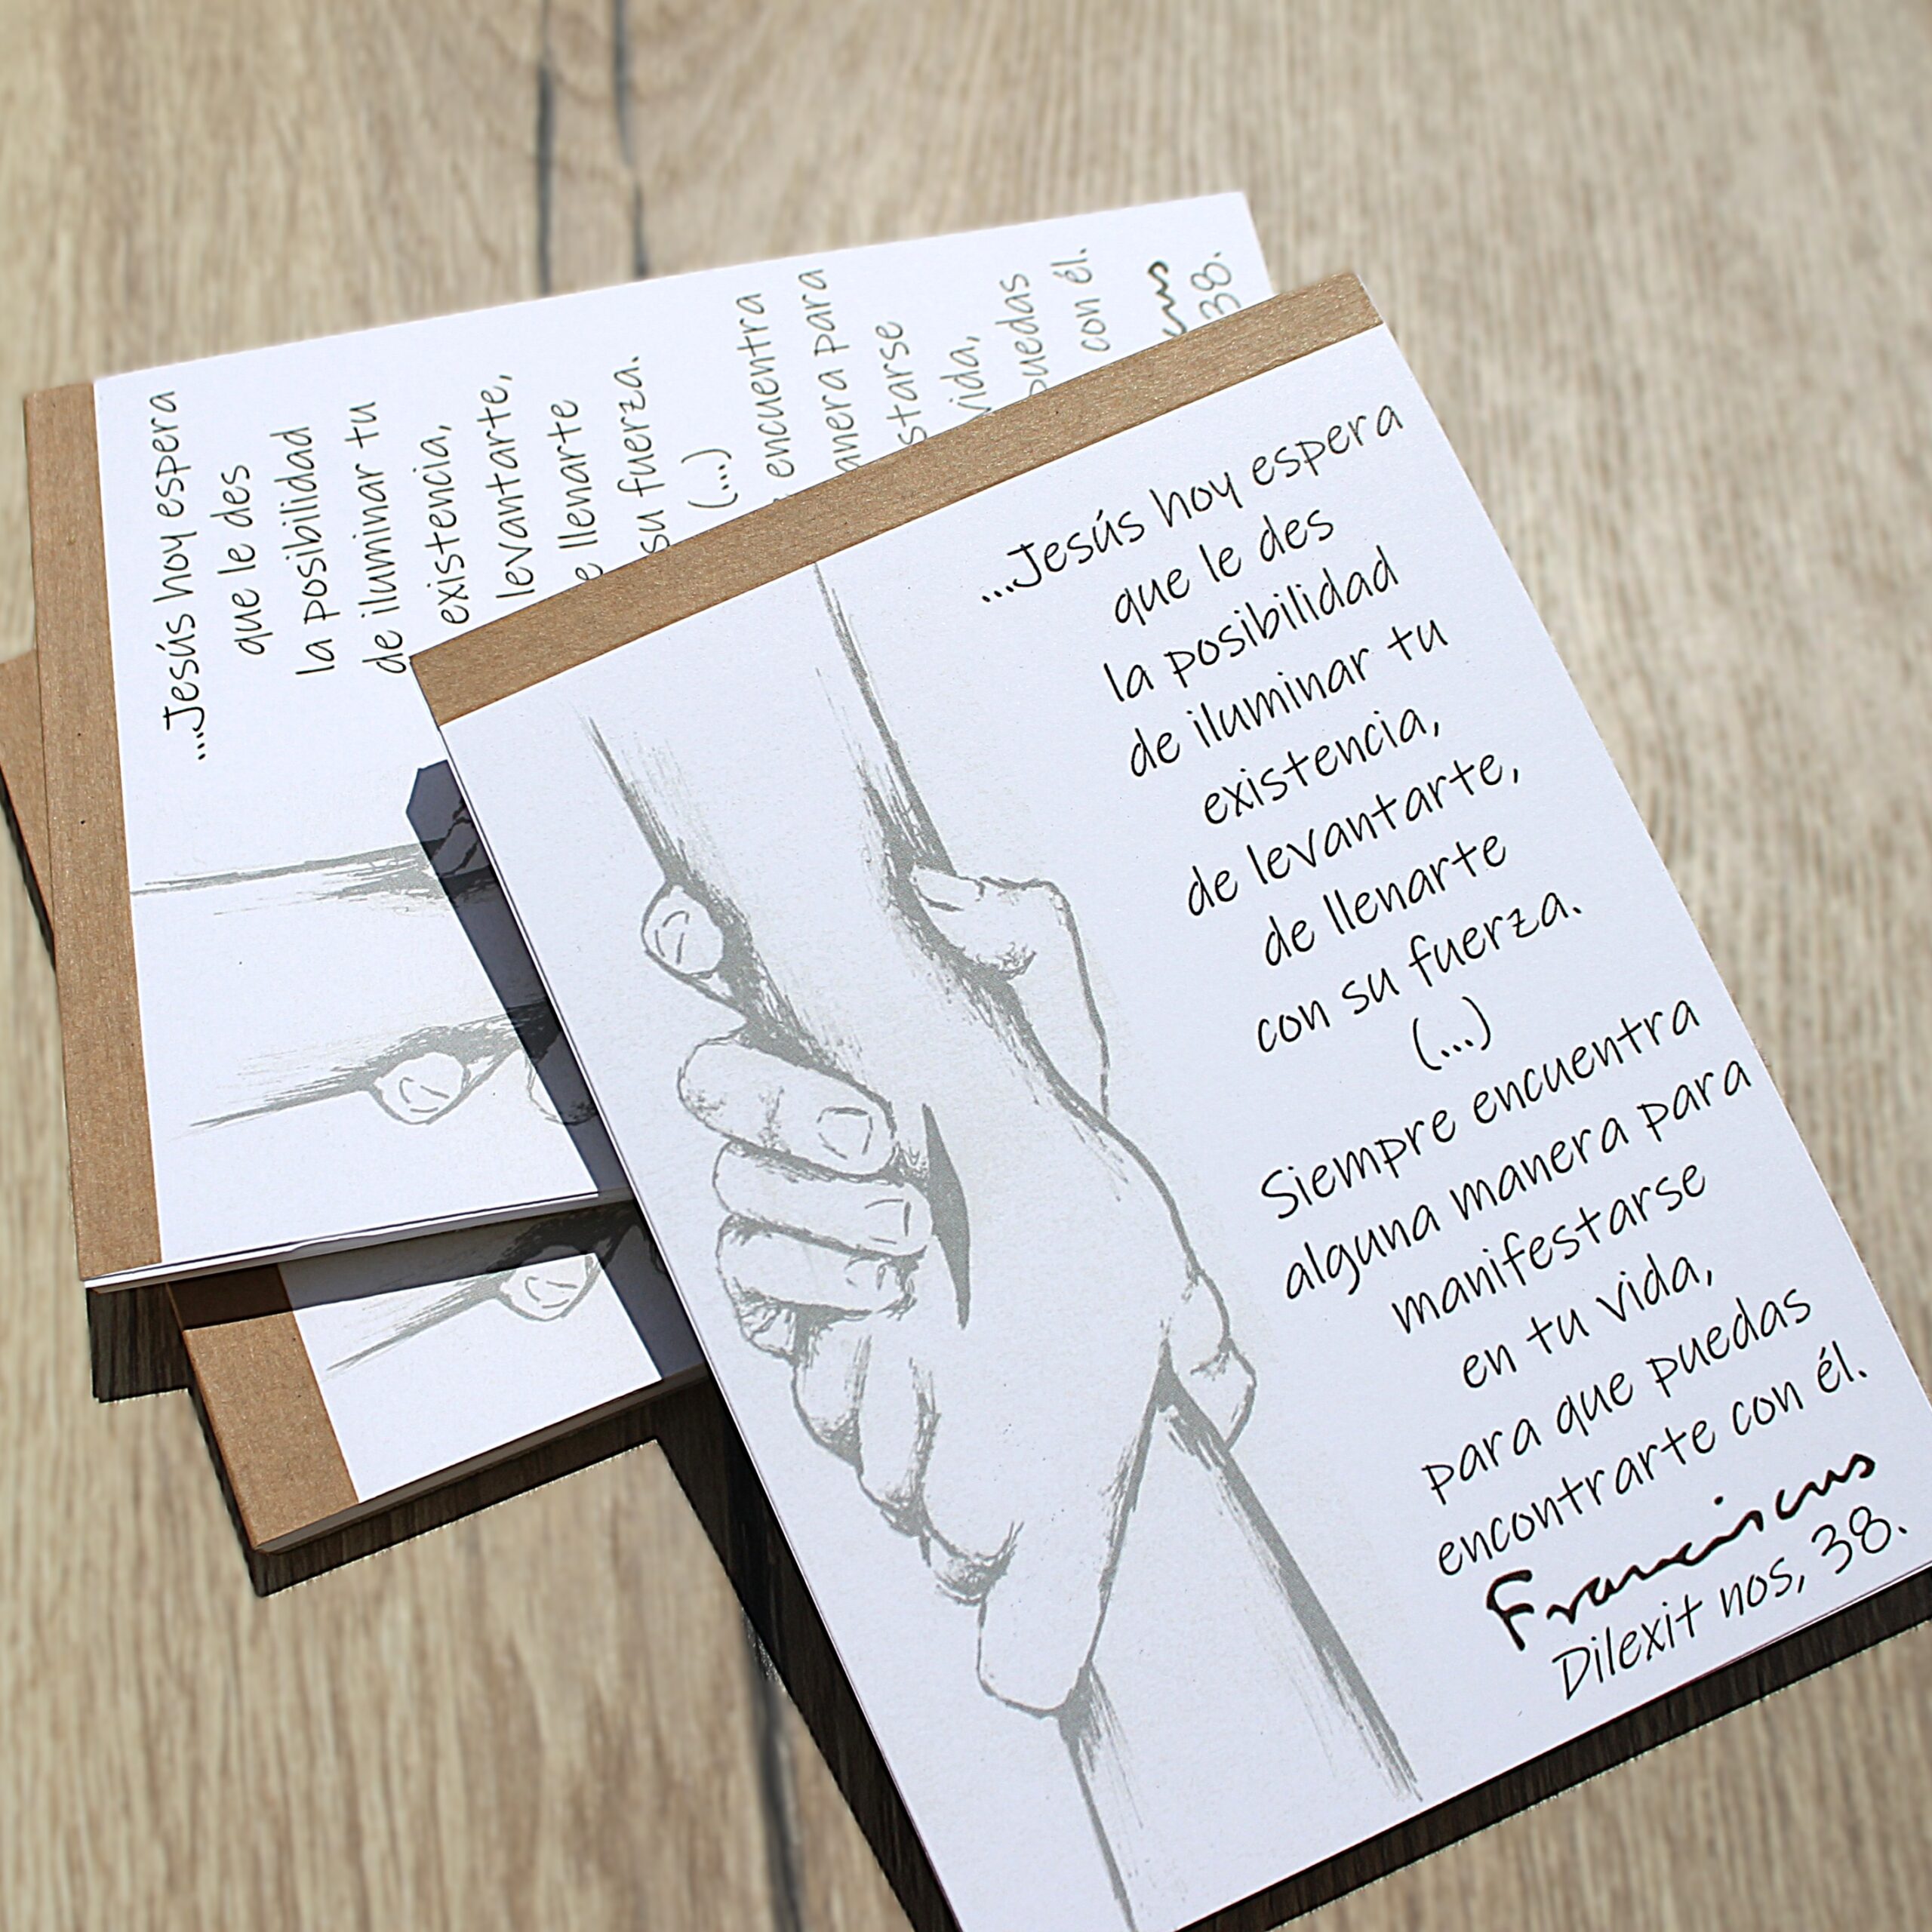 ...Jesús hoy espera
que le des
la posibilidad
de iluminar tu
existencia,
de levantarte,
de llenarte
con su fuerza.
(...)
Siempre encuentra
alguna manera para
manifestarse
en tu vida,
para que puedas
encontrarte con él.
Franciscus
Dilexit nos, 38.
...Jesús hoy espera
que le des
la posibilidad
de iluminar tu
existencia,
levantarte,
llenarte
su fuerza.
(...)
encuentra
para
vida,
con él.
38.